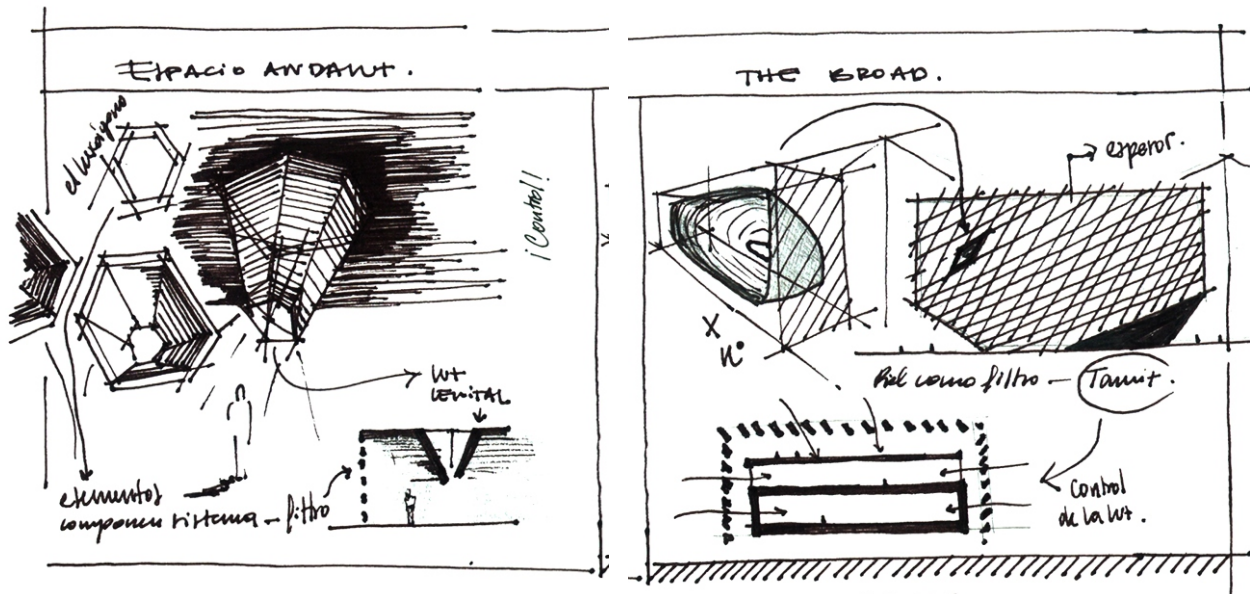 ESPACIO ANDALUZ.
el hexágono
¡Control!
luz
CENITAL
elementos
componen sistema — filtro
THE BROAD.
espesor.
X
nº
Piel como filtro — Tamiz.
control
de la luz.